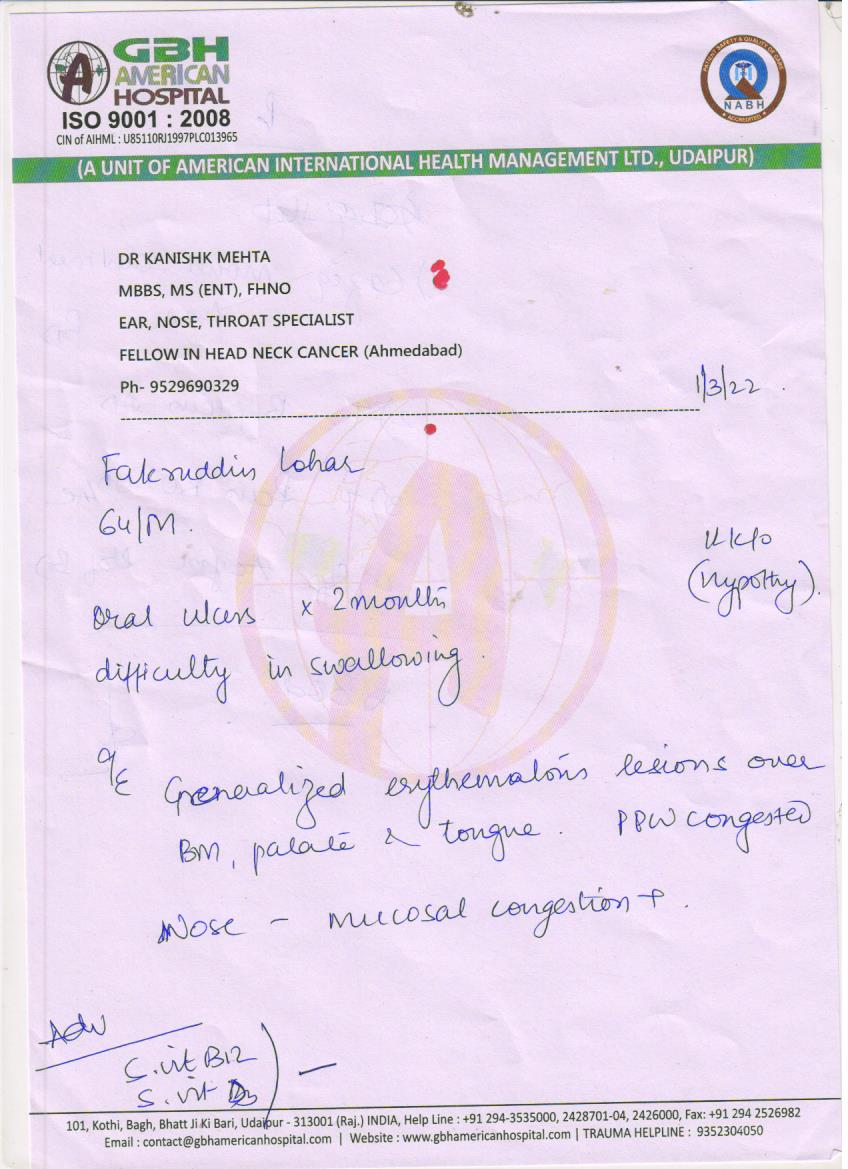 GBH
AMERICAN
HOSPITAL
ISO 9001 : 2008
CIN of AIHML : U85110RJ1997PLC013965
PATIENT SAFETY & QUALITY OF CARE
NABH
ACCREDITED
(A UNIT OF AMERICAN INTERNATIONAL HEALTH MANAGEMENT LTD., UDAIPUR)
DR KANISHK MEHTA
MBBS, MS (ENT), FHNO
EAR, NOSE, THROAT SPECIALIST
FELLOW IN HEAD NECK CANCER (Ahmedabad)
Ph- 9529690329
1/3/22
Fakruddin Lohar
64/M.
K/c/o
(Hypothy).
Oral ulcers x 2 months
difficulty in swallowing.
O/E Generalized erythematous lesions over
BM, palate & tongue. PPW congested
Nose - Mucosal congestion +.
Adv
S. vit B12
S. vit D3
101, Kothi, Bagh, Bhatt Ji Ki Bari, Udaipur - 313001 (Raj.) INDIA, Help Line : +91 294-3535000, 2428701-04, 2426000, Fax: +91 294 2526982
Email : contact@gbhamericanhospital.com | Website : www.gbhamericanhospital.com | TRAUMA HELPLINE : 9352304050